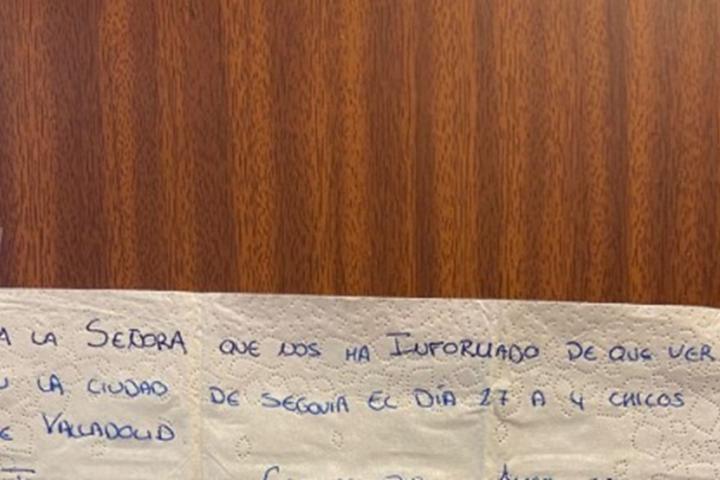 A LA SEÑORA QUE NOS HA INFORMADO DE QUE VER
LA CIUDAD DE SEGOVIA EL DÍA 27 A 4 CHICOS
E VALLADOLID